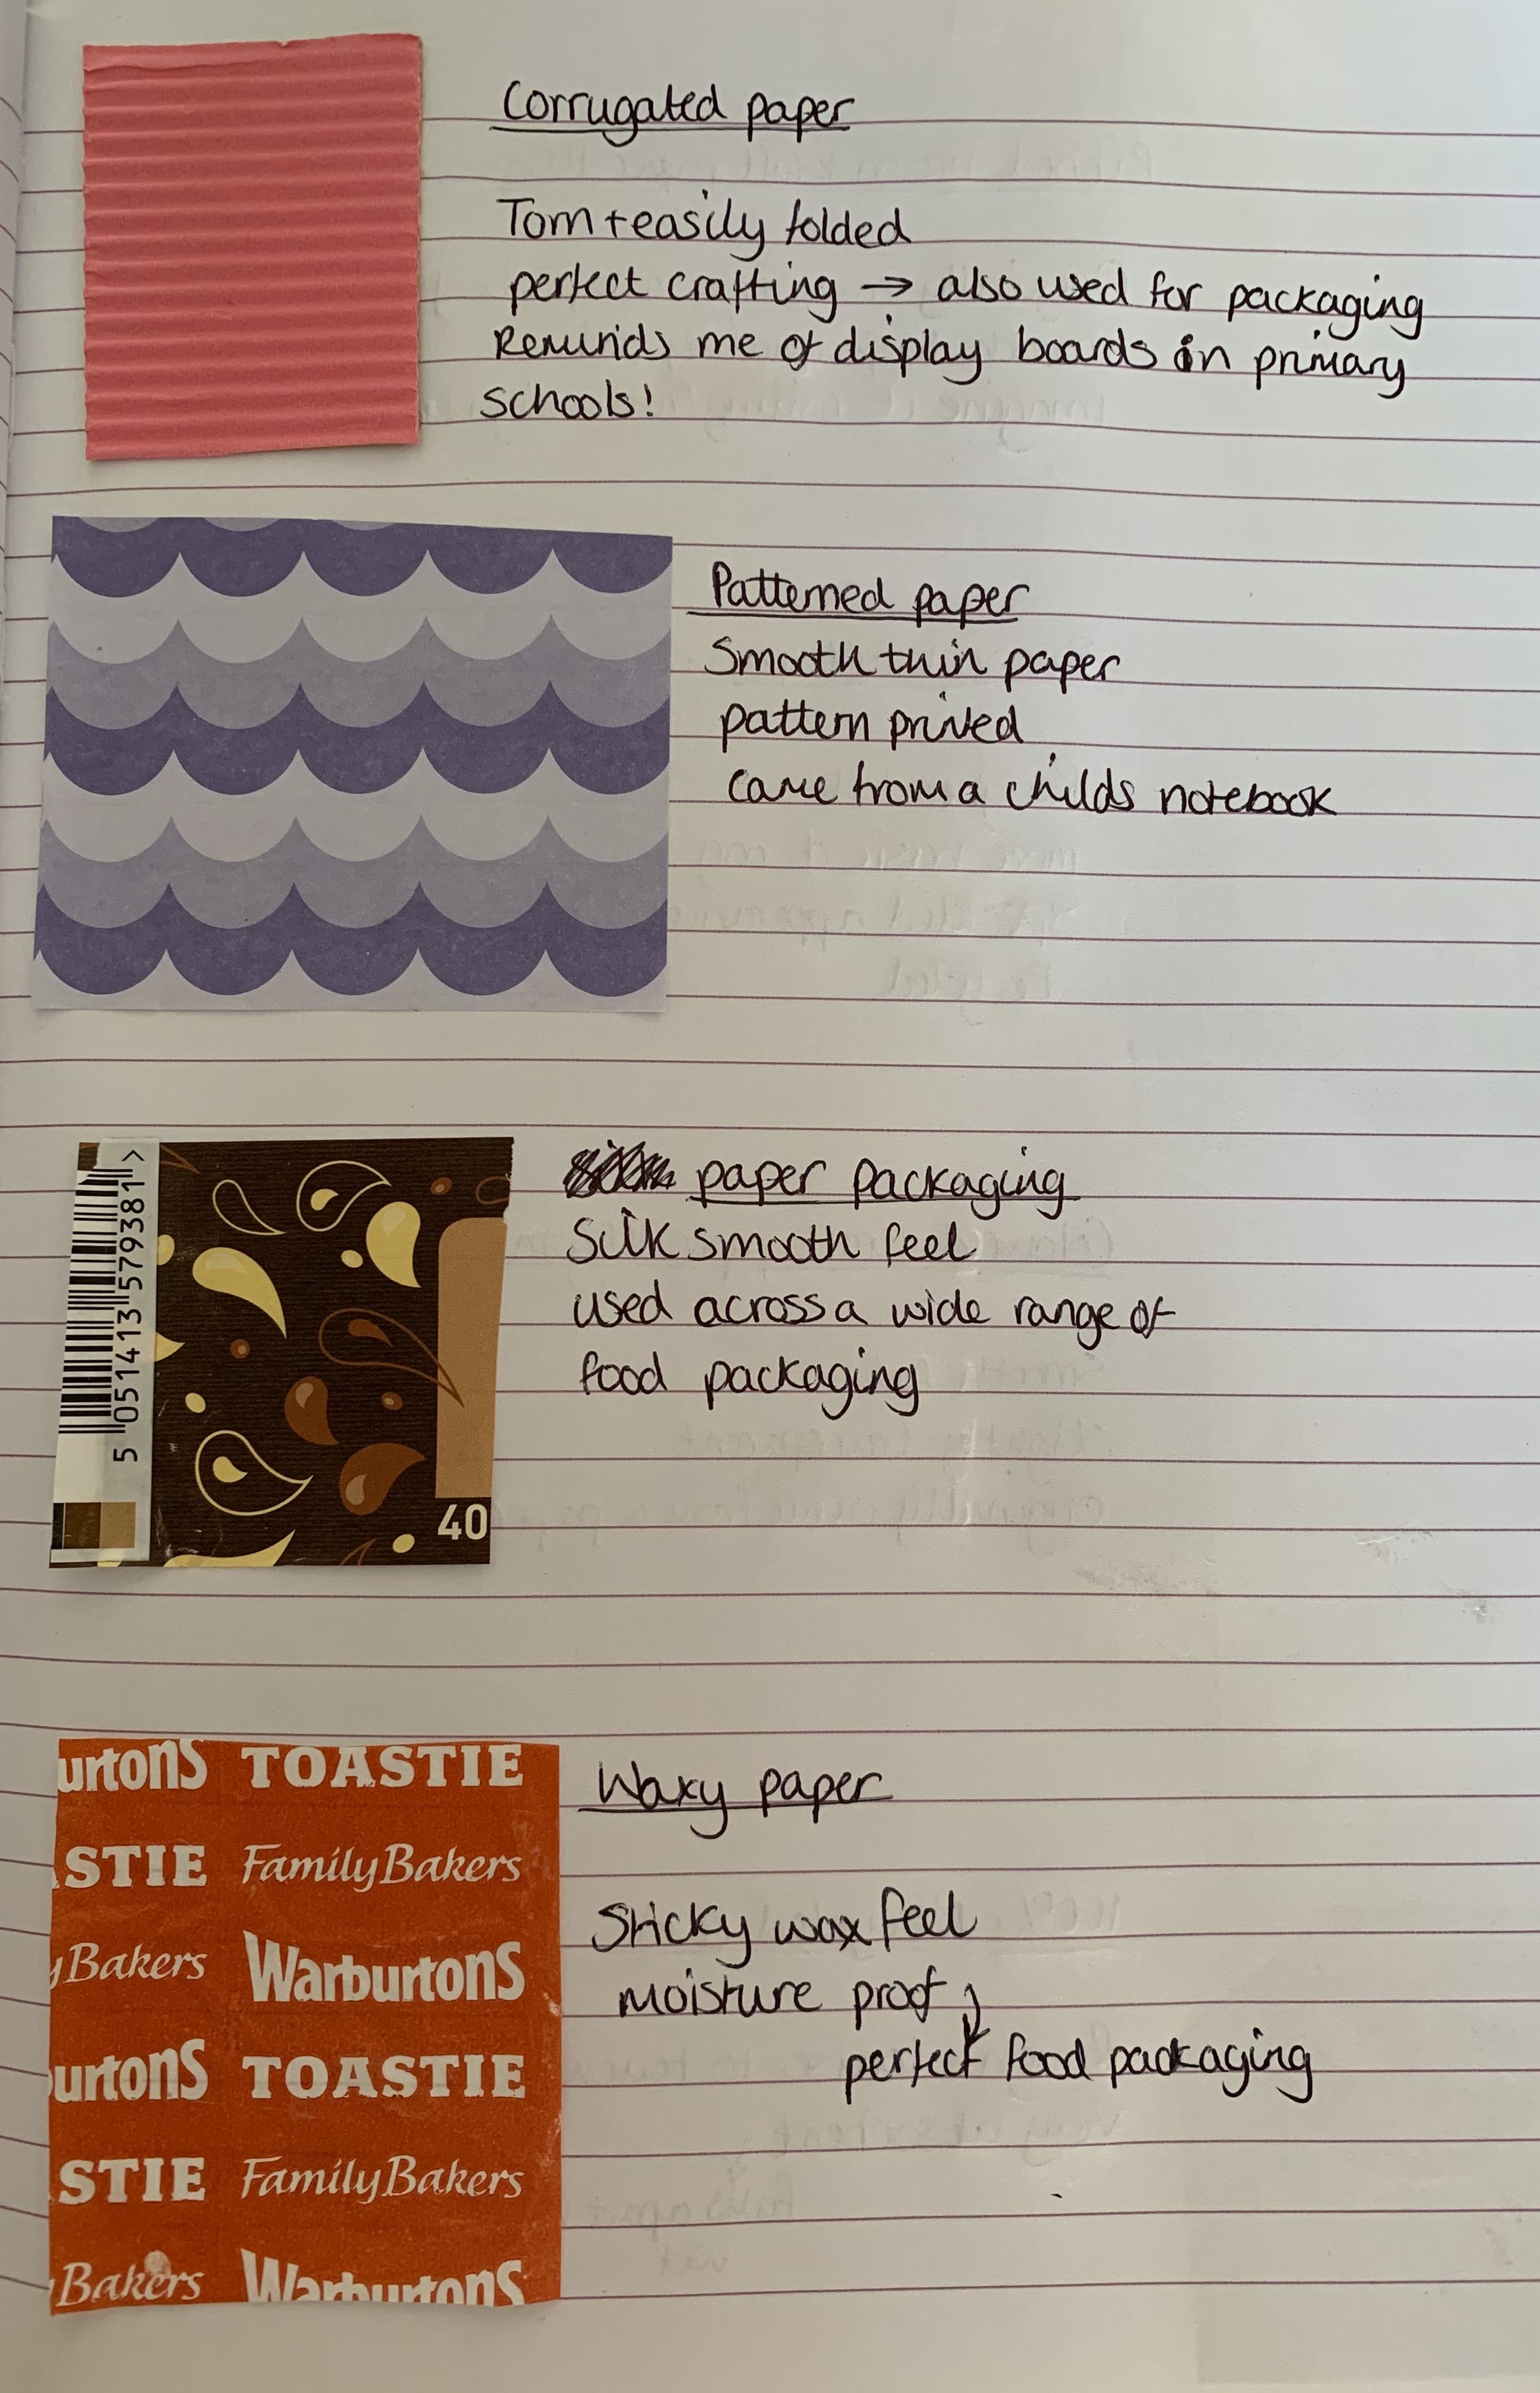 Corrugated paper
Torn + easily folded
perfect crafting → also used for packaging
Reminds me of display boards in primary
schools!
Patterned paper
Smooth thin paper
pattern printed
came from a childs notebook
paper packaging
Silk smooth feel
used across a wide range of
food packaging
5 051413 579381 >
40
Waxy paper
Sticky wax feel
moisture proof
perfect food packaging
urtons TOASTIE
STIE Family Bakers
Bakers Warburtons
urtons TOASTIE
STIE Family Bakers
Bakers Warburtons